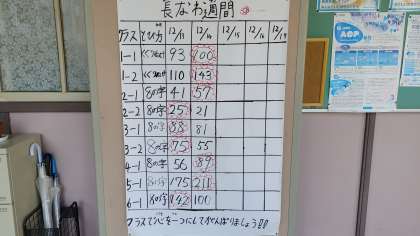 長なわ週間
クラス とび方 12/13 12/14 12/15 12/18 12/19
1-1 93 100
1-2 110 143
2-1 8の字 41 57
2-2 8の字 25 21
3-1 8の字 88 81
3-2 8の字 75 55
4-1 8の字 56 89
5-1 8の字 175 211
6-1 8の字 142 100
クラスで心を一つにしてがんばりましょう!!